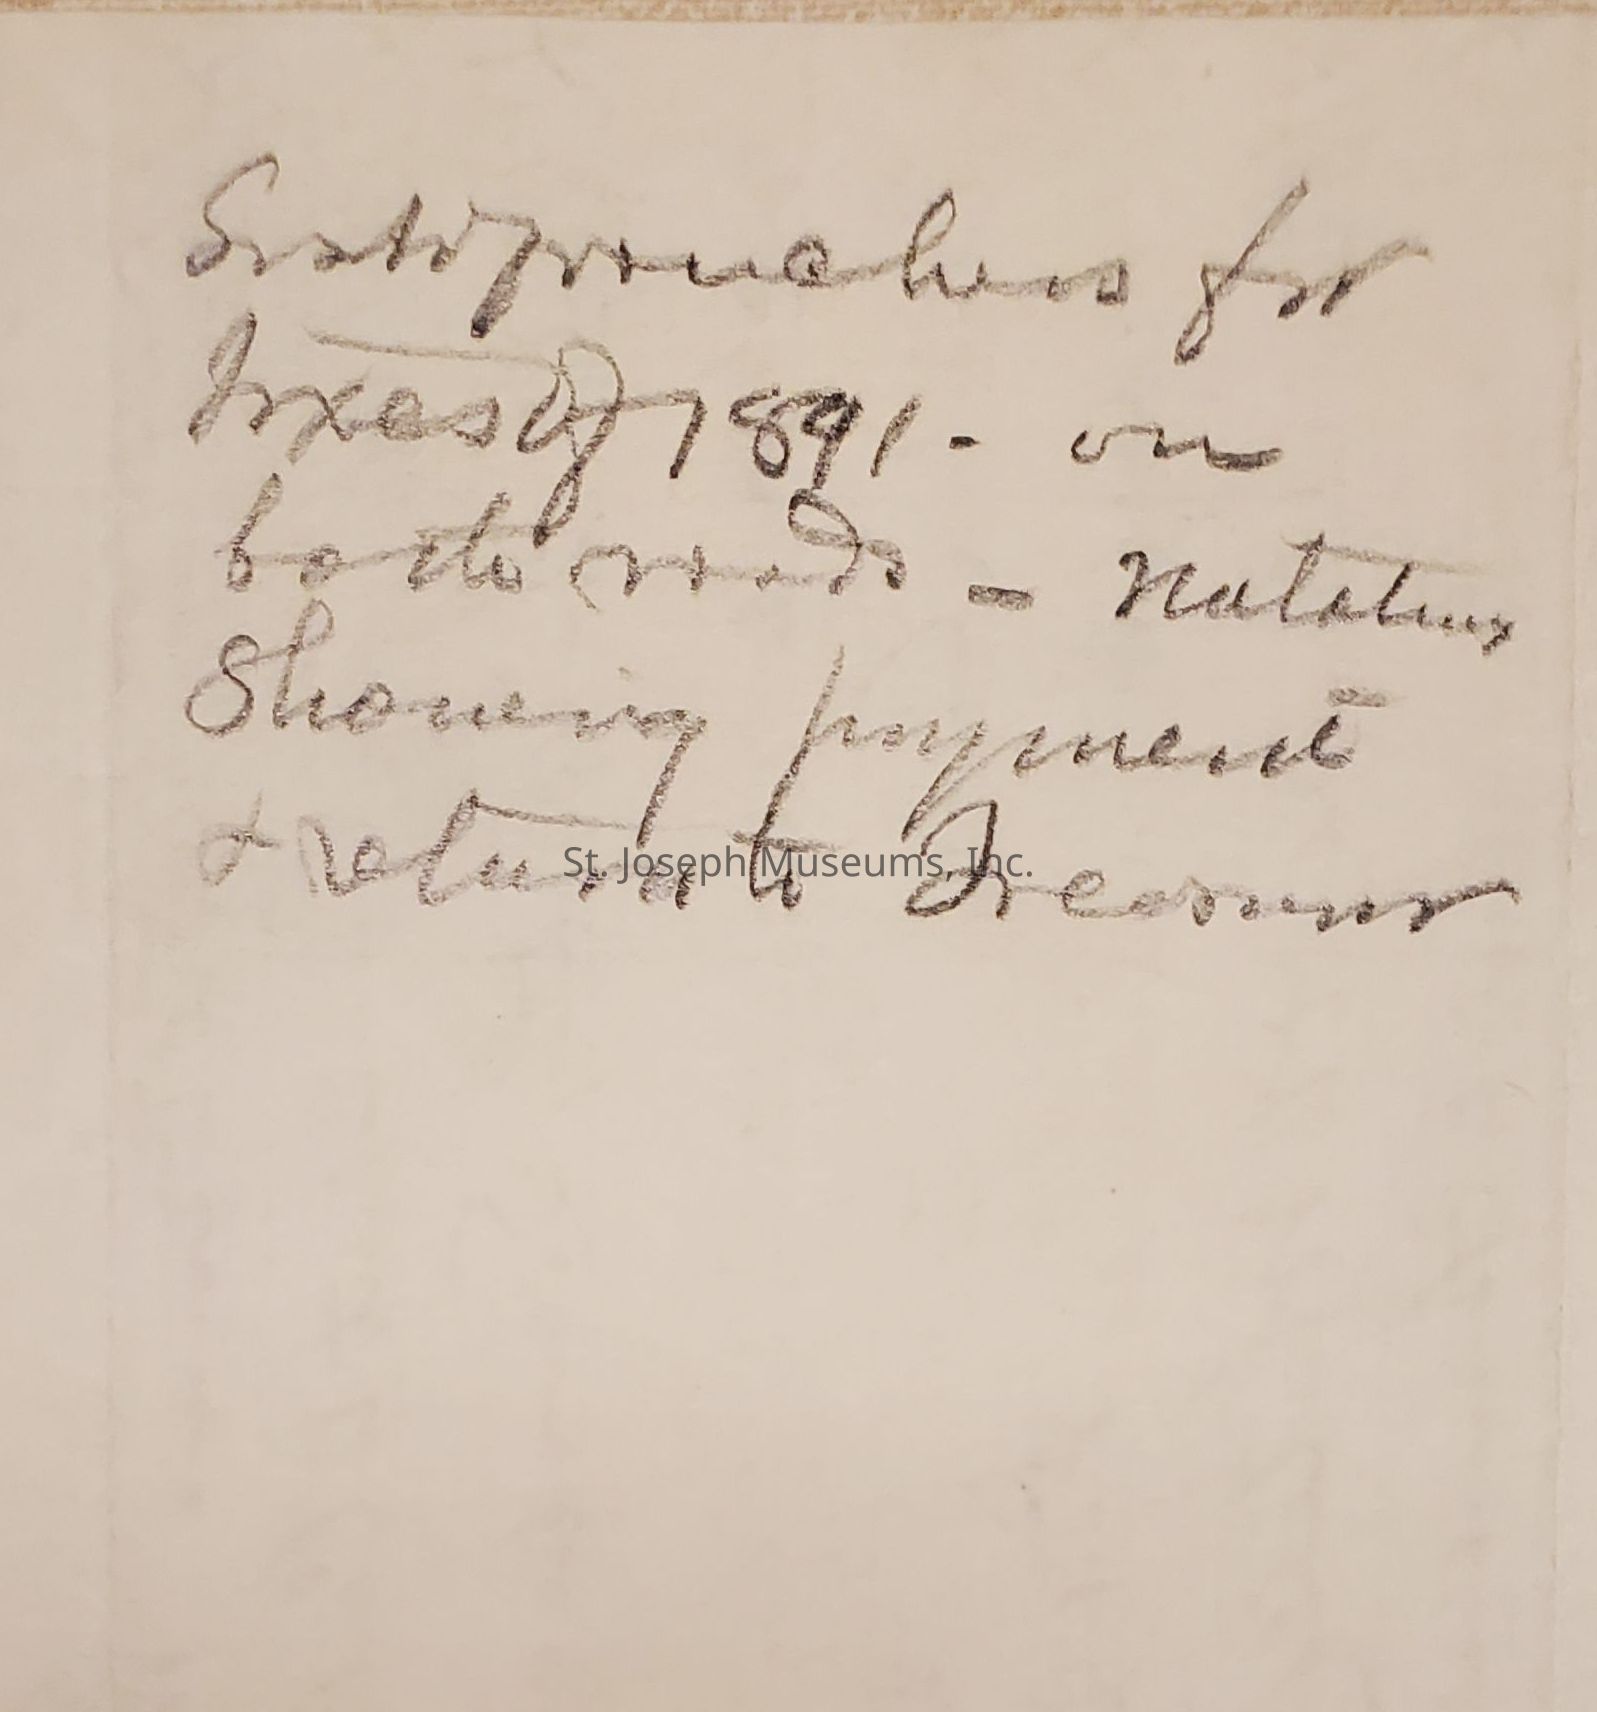 for
taxes of 1891 - on
both roads - Notation
Showing payment
& return to Treasurer
St. Joseph Museums, Inc.